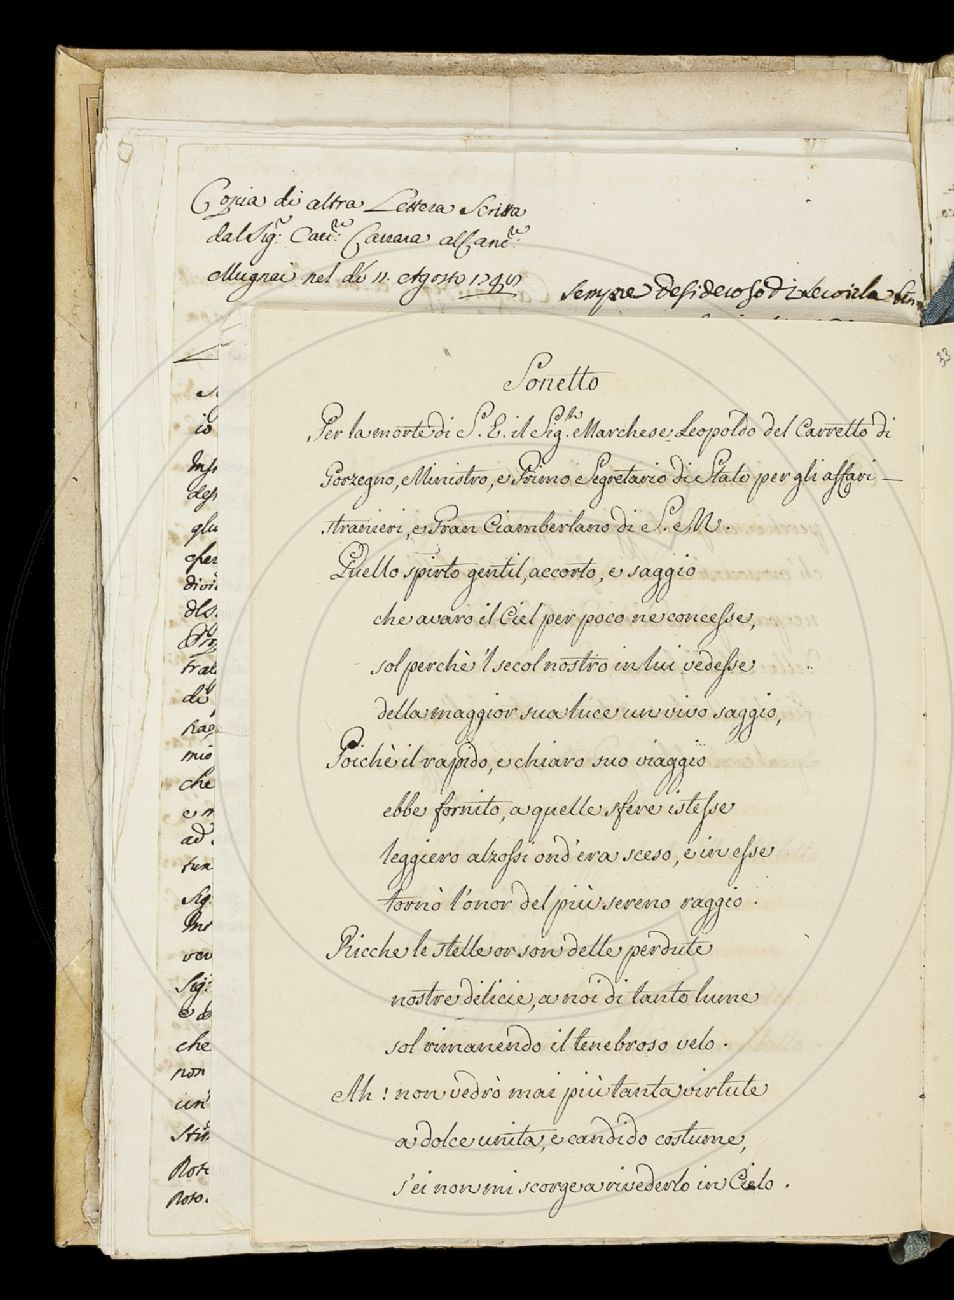 Copia di altra Lettera Scritta
dal Sig.r Cav.re Carrara al Canc.re
Mugnai nel dì 11. Agosto
sempre desideroso di
33
Sonetto
Per la morte di S. E. il Sig.r Marchese Leopoldo del Carretto di
Gorzegno, Ministro, e Primo Segretario di Stato per gli affari
stranieri, e Gran Ciamberlano di S. M.
Quello spirto gentil, accorto, e saggio
che avaro il Ciel per poco ne concesse,
sol perchè 'l secol nostro in lui vedesse
della maggior sua luce un vivo saggio,
Poichè il rapido, e chiaro suo viaggio
ebbe fornito, a quelle sfere istesse
leggiero alzossi ond'era sceso, e in esse
tornò l'onor del più sereno raggio.
Ricche le stelle or son delle perdute
nostre delicie, a noi di tanto lume
sol rimanendo il tenebroso velo.
Ah! non vedrò mai più tanta virtute
a dolce unita, e candido costume,
s'ei non mi scorge a rivederlo in Cielo.
io
gli
divi
trat
di
mio
che
e
ad
Sig.
Sig:
e
che
non
un